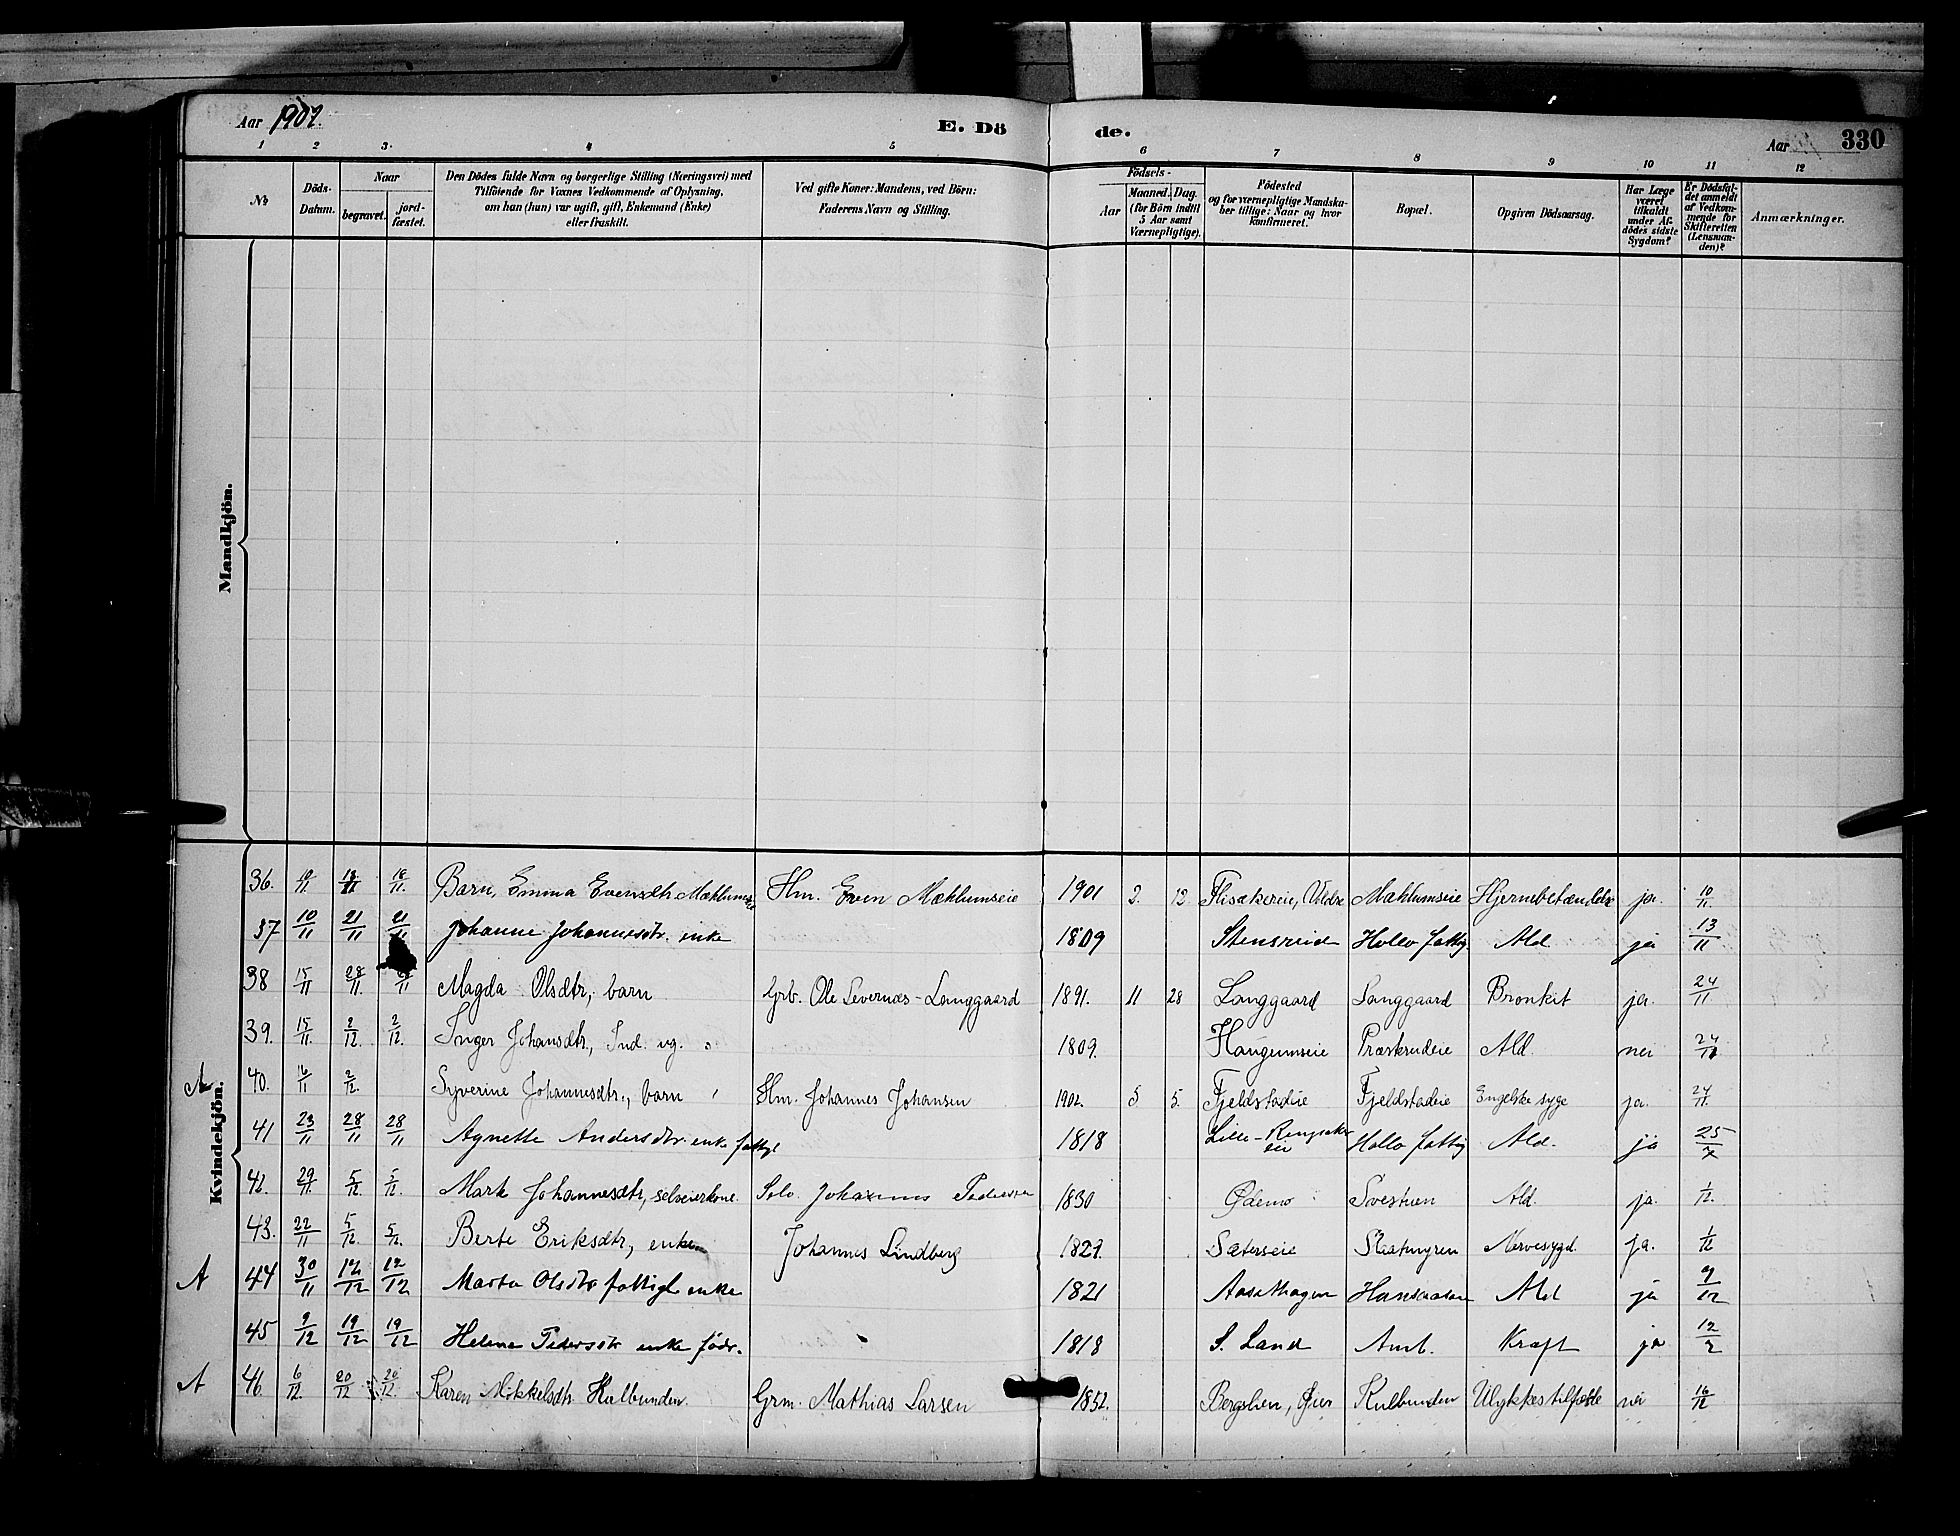 Aar 1902. E. Dö de. Aar 330
1 2 3. 4 5 6 7 8 9 10 11 12
No
Döds-Datum.
Naar
begravet. jord-fæstet.
Den Dödes fulde Navn og borgerlige Stilling (Næringsvei) med
Tilföiende for Voxnes Vedkommende af Oplysning,
om han (hun) var ugift, gift, Enkemand (Enke)
eller fraskilt.
Ved gifte Koner: Mandens, ved Börn:
Faderens Navn og Stilling.
Födsels-
Aar
Maaned. Dag.
(for Börn indtil
5 Aar samt
Værnepligtige).
Födested
og for værnepligtige Mandska-
ber tillige: Naar og hvor
konfirmeret.
Bopæl.
Opgiven Dödsaarsag.
Har Læge
været
tilkaldt
under Af-
dödes sidste
Sygdom?
Er Dödsfal-
det anmeldt
af Vedkom-
mende for
Skifteretten
(Lensman-
den)?
Anmærkninger.
Mandkjön.
Kvindekjön.
36. 10/11 18/11 18/11. Barn, Emma Evensdtr. Mæhlumseie Hm. Even Mæhlumseie 1901 2. 12. Flisakereie, Vildse Mæhlumseie Hjernebetændelse ja. 10/11.
37 10/11 21/11 21/11 Johanne Johannesdtr. enke 1809 Stensreid Hollo fattig Ald ja 13/11
38 15/11 28/11 Magda Olsdtr, barn Grb. Ole Severnæs-Langgaard 1891. 11 28 Langgaard Langgaard Bronkit ja. 24/11
39. 15/11. 2/12. 2/12. Inger Johansdtr., Ind. ug. 1809. Haugumseie Præstrudeie Ald. nei 24/11
A 40. 16/11 2/12. Syverine Johannesdtr., barn Hm. Johannes Johansen 1902. 5 5. Fjeldstadeie Fjeldstadeie Engelske syge ja. 24/11.
41 23/11 28/11 28/11 Agnette Andersdtr. enke fattigl 1818 Lille-Ringsaker
eie Hollo fattig Ald. ja 25/
42. 29/11. 5/12. 5/12. Marte Johannesdtr, selveierkone Selv. Johannes Pedersen 1830 Ødemo Svestuen Ald. ja. 1/12.
43. 22/11 5/12. 5/12. Berte Eriksdtr, enke Johannes Lindberg 1827. Sæterseie Slaatmyren Nervesygd. ja. 1/12
A 44 30/11 12/12 12/12 Marta Olsdtr fattigl enke 1821 Aasethagen Ald ja 9/12
45 9/12 19/12 19/12 Helene Pedersdtr enke födr. 1818 S. Land Amb. Kræft ja 12/
A 46. 6/12. 20/12 20/12. Karen Mikkelsdtr. Kulbunden. Grm. Mathias Larsen 1852. Bergslien, Øier Kulbunden Ulykkestilfælde nei 16/12